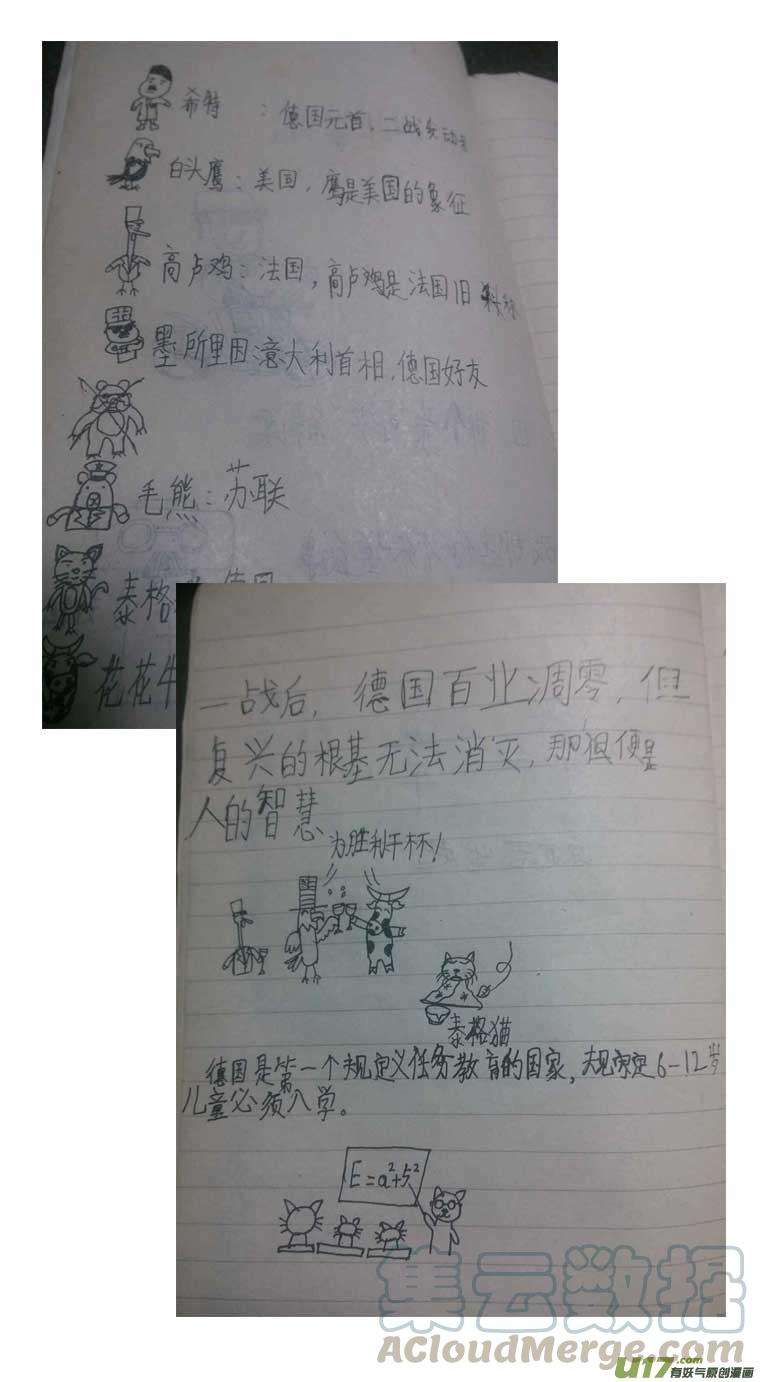 希特 : 德国元首，二战发动者
白头鹰：美国，鹰是美国的象征
高卢鸡：法国，高卢鸡是法国旧
墨所里因：意大利首相，德国好友
毛熊：苏联
泰格
花花牛
一战后，德国百业凋零，但
复兴的根基无法消灭，那便是
人的智慧
为胜利干杯！
泰格猫
德国是第一个规定义任务教育的国家，规定6-12岁
儿童必须入学。
E=a²+b²
集云数据
ACloudMerge.com
U17.com
有妖气原创漫画